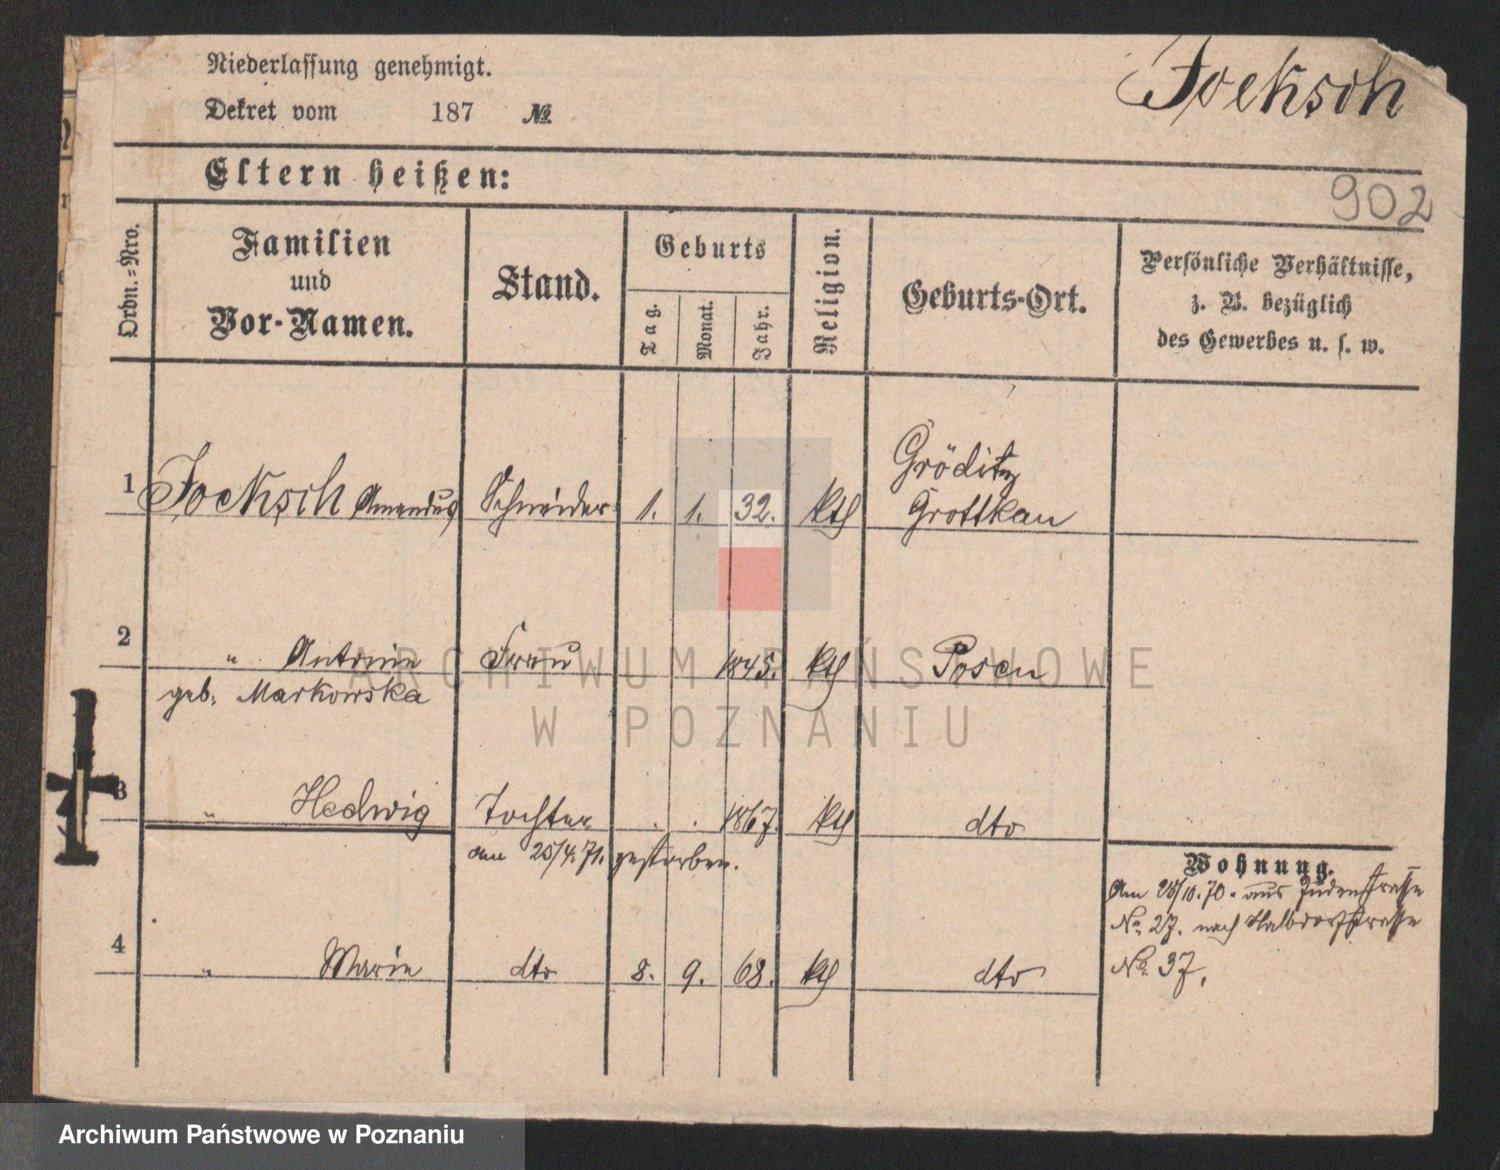 Niederlassung genehmigt.
Dekret vom 187 №
Jocksch
902
Eltern heißen:
Ordn.-Nro.
Familien
und
Vor-Namen.
Stand.
Geburts
Tag.
Monat.
Jahr.
Religion.
Geburts-Ort.
Persönliche Verhältnisse,
z. B. bezüglich
des Gewerbes u. s. w.
1 Jocksch Amandus Schneider 1. 1. 32. kth Gröditz
Grottkau
2 " Antonie Frau 1845. kth Posen
geb. Markowska
3 " Hedwig Tochter . . 1867. kth dto
am 20/4. 71. gestorben.
Wohnung.
Am 28/10. 70. aus Judenstrasse
No. 27. nach Halbdorfstrasse
No. 37.
4 " Marie dto 8. 9. 68. kth dto
ARCHIWUM PAŃSTWOWE
W POZNANIU
Archiwum Państwowe w Poznaniu